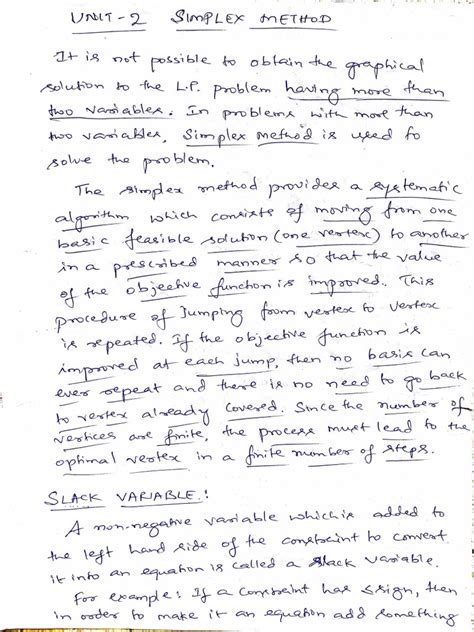 UNIT-2 SIMPLEX METHOD
It is not possible to obtain the graphical
solution to the L.P. problem having more than
two variables. In problems with more than
two variables, Simplex method is used to
solve the problem.
The simplex method provides a systematic
algorithm which consists of moving from one
basic feasible solution (one vertex) to another
in a prescribed manner so that the value
of the objective function is improved. This
procedure of Jumping from vertex to vertex
is repeated. If the objective function is
improved at each jump, then no basis can
ever repeat and there is no need to go back
to vertex already covered. Since the number of
vertices are finite, the process must lead to the
optimal vertex in a finite number of steps.
SLACK VARIABLE:
A non-negative variable which is added to
the left hand side of the constraint to convert
it into an equation is called a slack variable.
For example: If a constraint has ≤ sign, then
in order to make it an equation add something